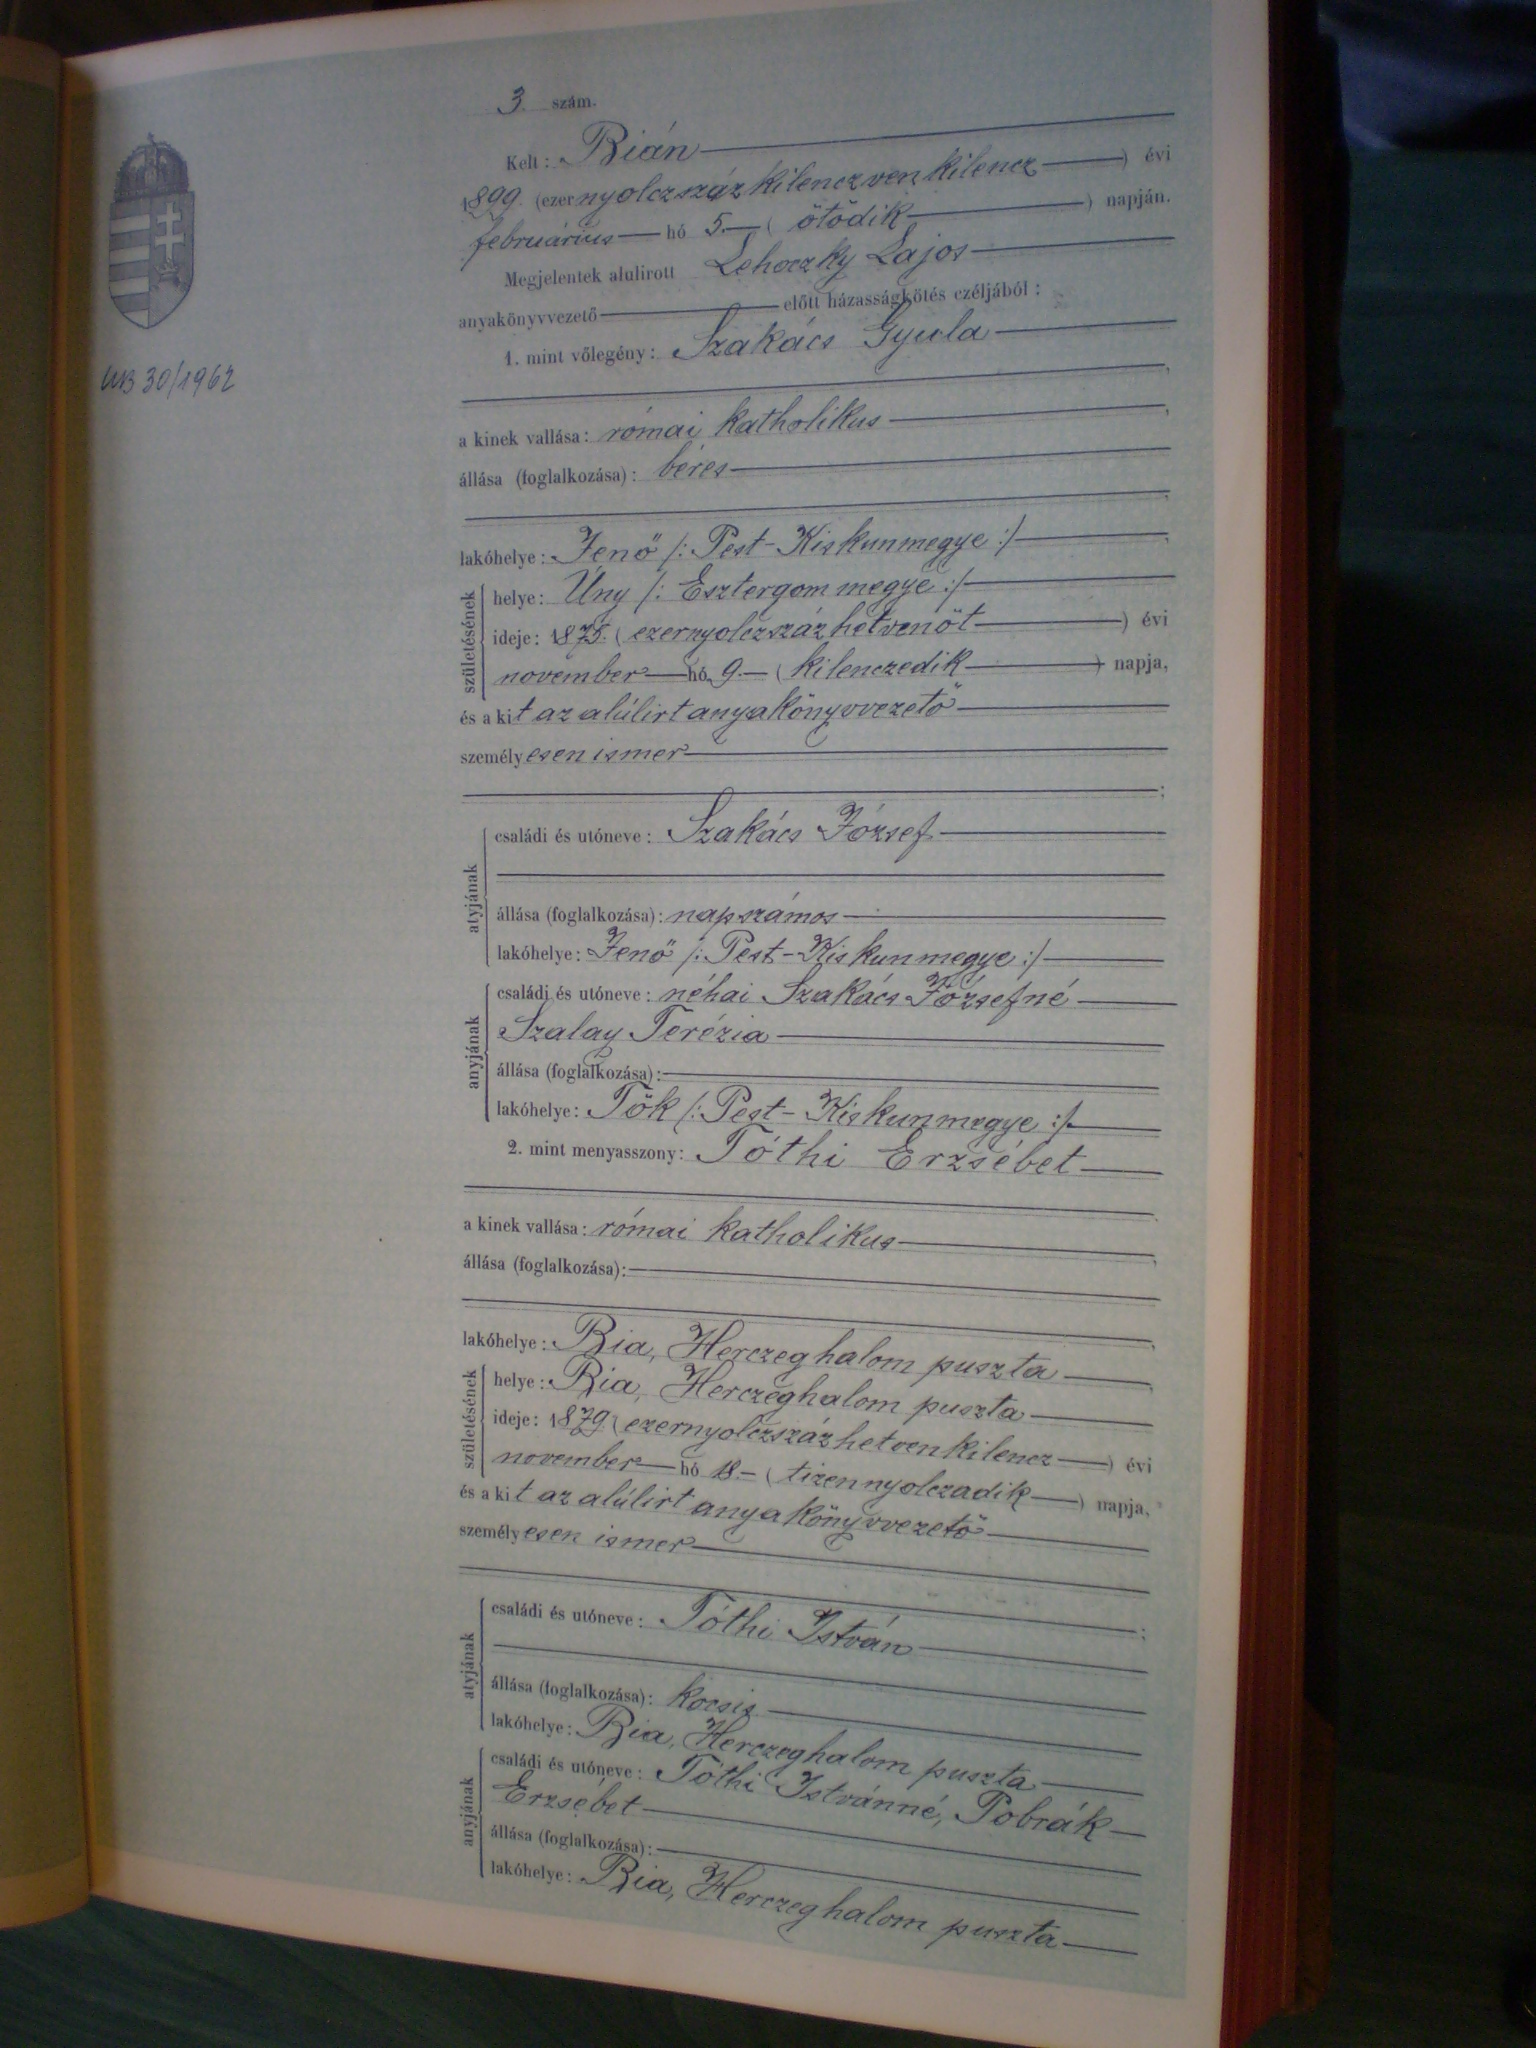 3. szám.
Kelt: Bián
1899. (ezernyolczszázkilenczvenkilencz) évi
februárius hó 5. (ötödik) napján.
Megjelentek alulirott Lehoczky Lajos
anyakönyvvezető előtt házasságkötés czéljából:
1. mint vőlegény: Szakács Gyula
30/1962
a kinek vallása: római katholikus,
állása (foglalkozása): béres
lakóhelye: Jenő /: Pest-Kiskunmegye :/,
születésének
helye: Úny /: Esztergom megye :/
ideje: 1875. (ezernyolczszázhetvenöt) évi
november hó 9. (kilenczedik) napja,
és a kit az alúlirt anyakönyvvezető
személyesen ismer
;
atyjának
családi és utóneve: Szakács József
állása (foglalkozása): napszámos
lakóhelye: Jenő /: Pest-Kiskunmegye :/
anyjának
családi és utóneve: néhai Szakács Józsefné
Szalay Terézia
állása (foglalkozása):
lakóhelye: Tök /: Pest-Kiskunmegye :/
2. mint menyasszony: Tóthi Erzsébet
a kinek vallása: római katholikus,
állása (foglalkozása):
lakóhelye: Bia, Herczeghalom puszta,
születésének
helye: Bia, Herczeghalom puszta
ideje: 1879. (ezernyolczszázhetvenkilencz) évi
november hó 18. (tizennyolczadik) napja,
és a kit az alúlirt anyakönyvvezető
személyesen ismer
;
atyjának
családi és utóneve: Tóthi István
állása (foglalkozása): kocsis
lakóhelye: Bia, Herczeghalom puszta
anyjának
családi és utóneve: Tóthi Istvánné, Pobrák
Erzsébet
állása (foglalkozása):
lakóhelye: Bia, Herczeghalom puszta